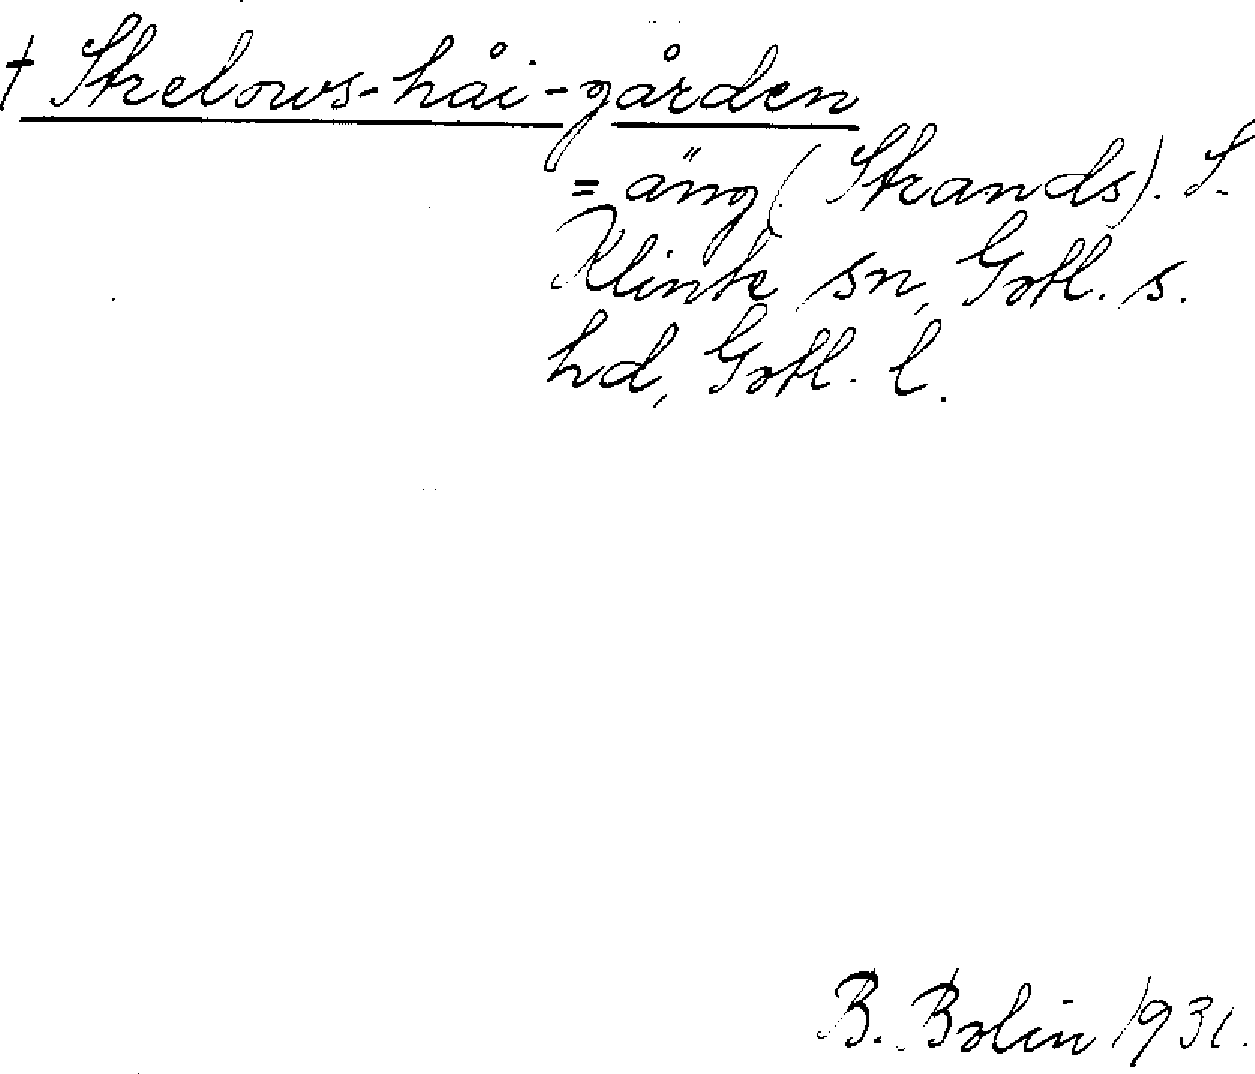 † Strelows-håi-gården
= äng (Strands). S.
Klinte sn, Gotl. s.
hd, Gotl. l.
B. Bolin 1931.